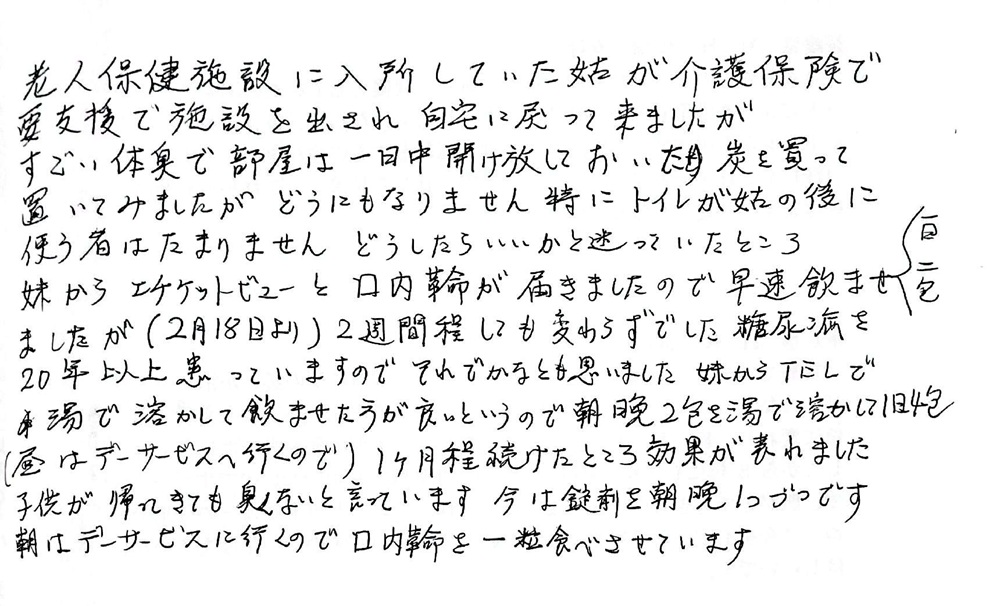 老人保健施設に入所していた姑が介護保険で
要支援で施設を出され 自宅に戻って来ましたが
すごい体臭で部屋は一日中開け放しておいたり炭を買って
置いてみましたがどうにもなりません 特にトイレが姑の後に
使う者はたまりません どうしたらいいかと迷っていたところ
妹からエチケットビューと口内革命が届きましたので早速飲ませ
一日二包
ましたが(2月18日より)2週間程しても変わらずでした 糖尿病を
20年以上患っていますのでそれでかなとも思いました 妹からTELで
湯で溶かして飲ませたうが良いというので朝晩2包を湯で溶かして1日4包
(昼はデーサービスへ行くので)1ヶ月程続けたところ効果が表れました
子供が帰ってきても臭くないと言っています 今は錠剤を朝晩1つづつです
朝はデーサービスに行くので口内革命を一粒食べさせています